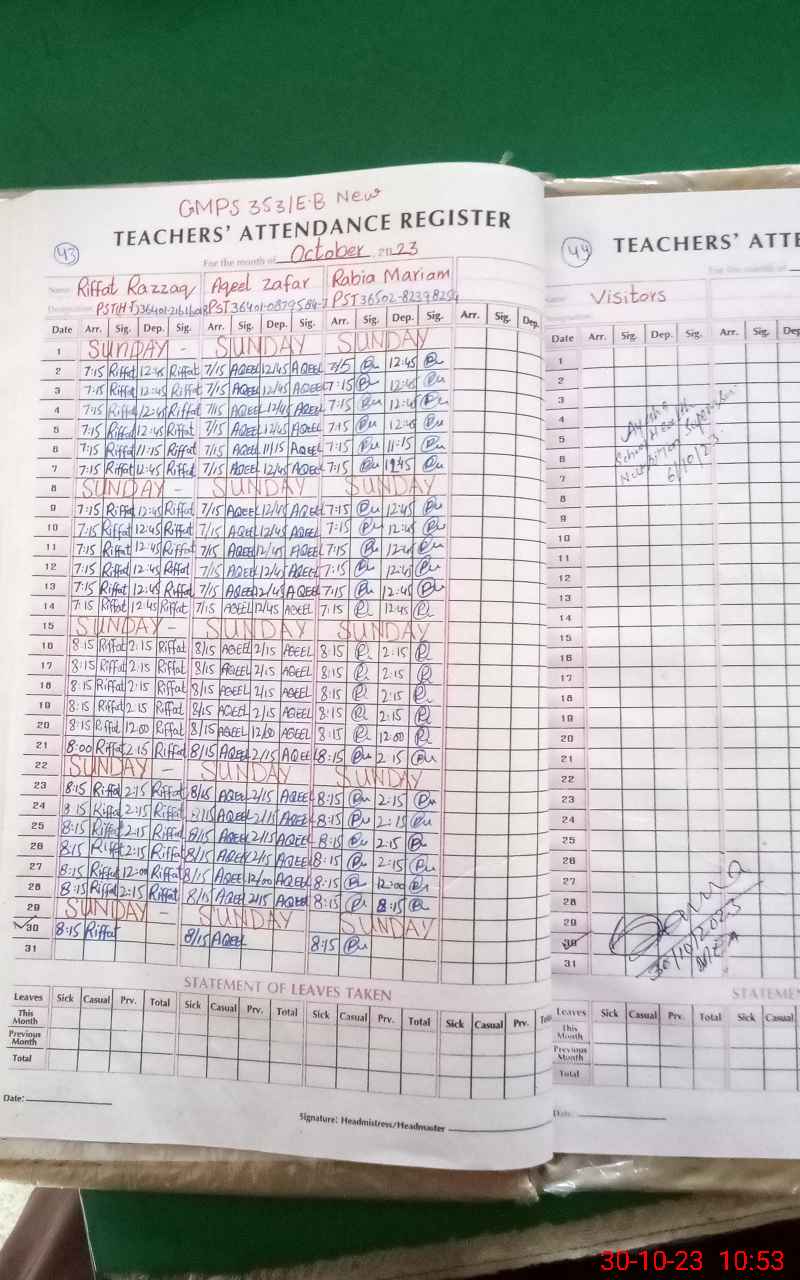 GMPS 353/E.B New
TEACHERS' ATTENDANCE REGISTER
43
For the month of October 2023
Name Riffat Razzaq Aqeel Zafar Rabia Mariam
Designation PST(H.T) PST 36401-0879584-7 PST 36502-8239825
Date Arr. Sig. Dep. Sig. Arr. Sig. Dep. Sig. Arr. Sig. Dep. Sig. Arr. Sig. Dep.
1 SUNDAY - SUNDAY SUNDAY
2 7:15 Riffat 12:45 Riffat 7/15 AQEEL 12/45 AQEEL 7/5 12:45
3 7:15 Riffat 12:45 Riffat 7/15 AQEEL 12/45 AQEEL 7:15 12:45
4 7:15 Riffat 12:45 Riffat 7/15 AQEEL 12/45 AQEEL 7:15 12:45
5 7:15 Riffat 12:45 Riffat 7/15 AQEEL 12/45 AQEEL 7:15 12:45
6 7:15 Riffat 11:15 Riffat 7/15 AQEEL 11/15 AQEEL 7:15 11:15
7 7:15 Riffat 12:45 Riffat 7/15 AQEEL 12/45 AQEEL 7:15 1245
8 SUNDAY - SUNDAY SUNDAY
9 7:15 Riffat 12:45 Riffat 7/15 AQEEL 12/45 AQEEL 7:15 12:45
10 7:15 Riffat 12:45 Riffat 7/15 AQEEL 12/45 AQEEL 7:15 12:45
11 7:15 Riffat 12:45 Riffat 7/15 AQEEL 12/45 AQEEL 7:15 12:45
12 7:15 Riffat 12:45 Riffat 7/15 AQEEL 12/45 AQEEL 7:15 12:45
13 7:15 Riffat 12:45 Riffat 7/15 AQEEL 12/45 AQEEL 7:15 12:45
14 7:15 Riffat 12:45 Riffat 7/15 AQEEL 12/45 AQEEL 7:15 12:45
15 SUNDAY - SUNDAY SUNDAY
16 8:15 Riffat 2:15 Riffat 8/15 AQEEL 2/15 AQEEL 8:15 2:15
17 8:15 Riffat 2:15 Riffat 8/15 AQEEL 2/15 AQEEL 8:15 2:15
18 8:15 Riffat 2:15 Riffat 8/15 AQEEL 2/15 AQEEL 8:15 2:15
19 8:15 Riffat 2:15 Riffat 8/15 AQEEL 2/15 AQEEL 8:15 2:15
20 8:15 Riffat 12:00 Riffat 8/15 AQEEL 12/00 AQEEL 8:15 12:00
21 8:00 Riffat 2:15 Riffat 8/15 AQEEL 2/15 AQEEL 8:15 2:15
22 SUNDAY - SUNDAY SUNDAY
23 8:15 Riffat 2:15 Riffat 8/15 AQEEL 2/15 AQEEL 8:15 2:15
24 8:15 Riffat 2:15 Riffat 8/15 AQEEL 2/15 AQEEL 8:15 2:15
25 8:15 Riffat 2:15 Riffat 8/15 AQEEL 2/15 AQEEL 8:15 2:15
26 8:15 Riffat 2:15 Riffat 8/15 AQEEL 2/15 AQEEL 8:15 2:15
27 8:15 Riffat 12:00 Riffat 8/15 AQEEL 12/00 AQEEL 8:15 12:00
28 8:15 Riffat 2:15 Riffat 8/15 AQEEL 2/15 AQEEL 8:15 8:15
29 SUNDAY - SUNDAY SUNDAY
30 8:15 Riffat 8/15 AQEEL 8:15
31
STATEMENT OF LEAVES TAKEN
Leaves Sick Casual Prv. Total Sick Casual Prv. Total Sick Casual Prv. Total Sick Casual Prv.
This Month
Previous Month
Total
Date:
Signature: Headmistress/Headmaster
44
TEACHERS' ATTE
For the month of
Name Visitors
Date Arr. Sig. Dep. Sig. Arr. Sig. Dep
1
2
3
4
5
6
7
8
9
10
11
12
13
14
15
16
17
18
19
20
21
22
23
24
25
26
27
28
29
30
31
School Health
Nutrition Supervisor
6/10/23
30/10/2023
MEA
STATEMEN
Leaves Sick Casual Prv. Total Sick Casual
This Month
Previous Month
Total
Date
30-10-23 10:53